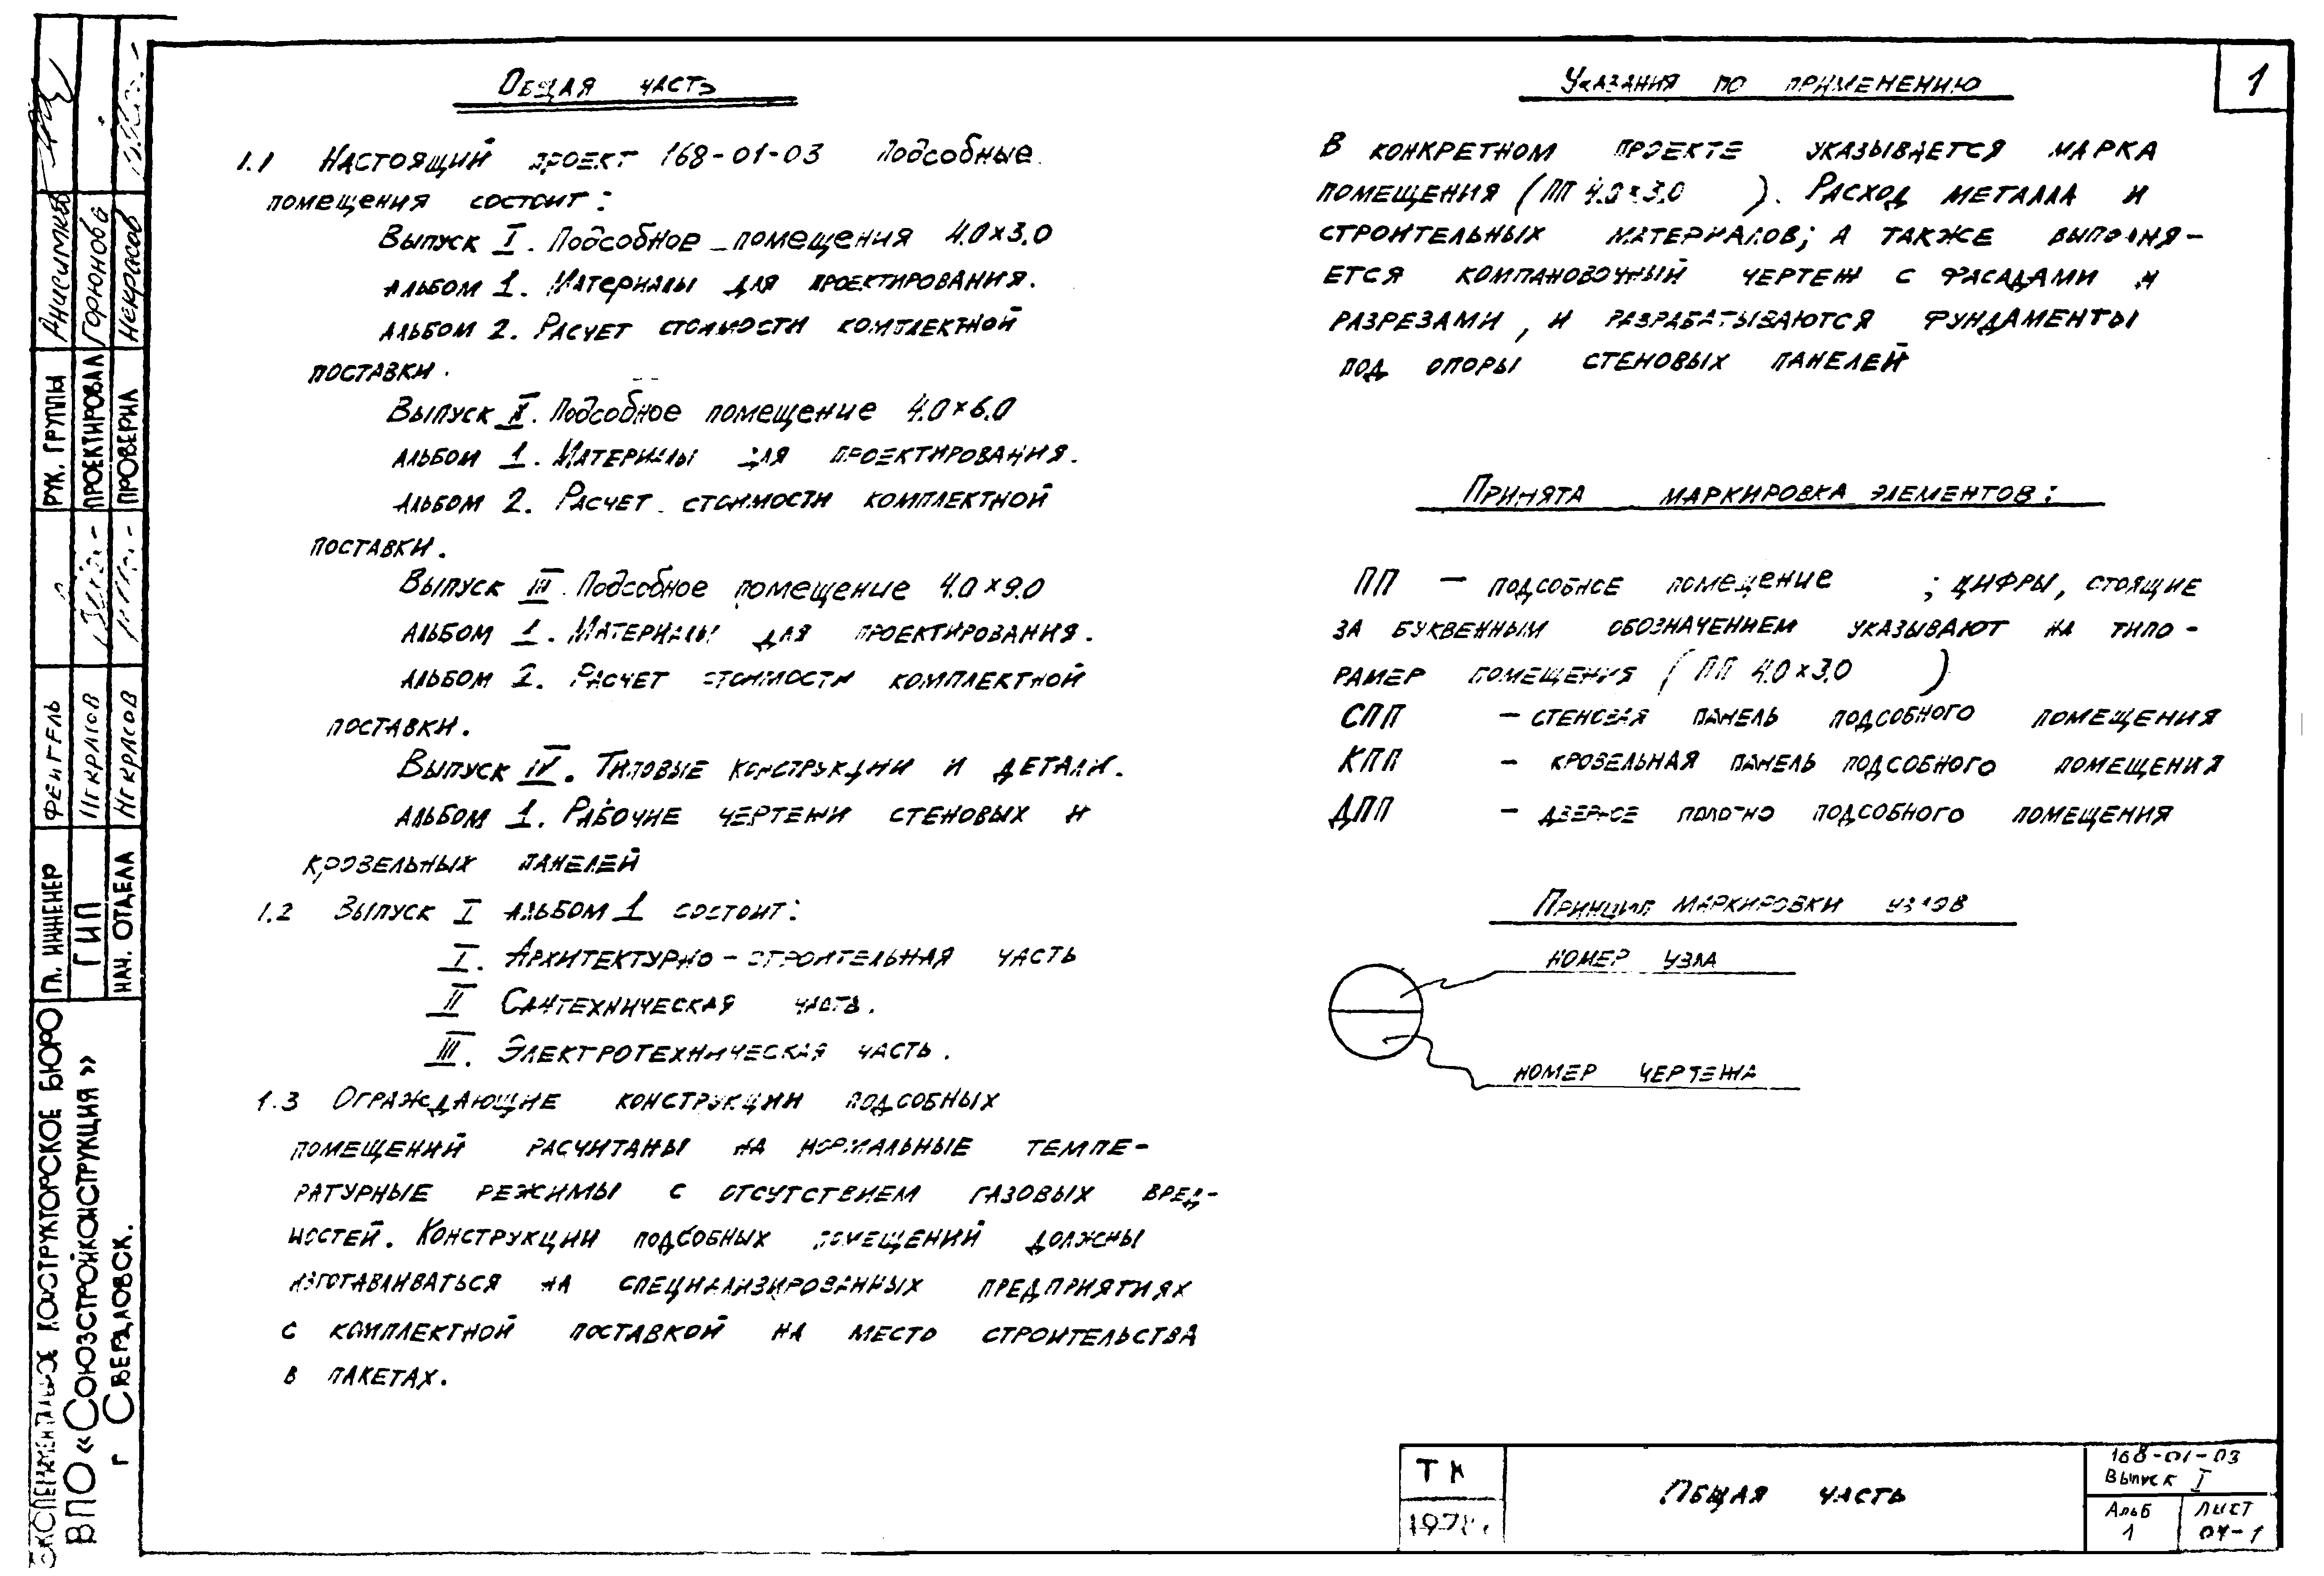 Общая часть
1.1 Настоящий проект 168-01-03 Подсобные
помещения состоит:
Выпуск I. Подсобное помещения 4.0×3.0
альбом 1. Материалы для проектирования.
альбом 2. Расчет стоимости комплектной
поставки.
Выпуск II. Подсобное помещение 4.0×6.0
альбом 1. Материалы для проектирования.
альбом 2. Расчет стоимости комплектной
поставки.
Выпуск III. Подсобное помещение 4.0×9.0
альбом 1. Материалы для проектирования.
альбом 2. Расчет стоимости комплектной
поставки.
Выпуск IV. Типовые конструкции и детали.
альбом 1. Рабочие чертежи стеновых и
кровельных панелей
1.2 Выпуск I альбом 1 состоит:
I. Архитектурно-строительная часть
II Сантехническая часть.
III. Электротехническая часть.
1.3 Ограждающие конструкции подсобных
помещений расчитаны на нормальные темпе-
ратурные режимы с отсутствием газовых вред-
ностей. Конструкции подсобных помещений должны
изготавливаться на специализированных предприятиях
с комплектной поставкой на место строительства
в пакетах.
Указания по применению
1
В конкретном проекте указывается марка
помещения (ПП 4.0×3.0 ). Расход металла и
строительных материалов; а также выполня-
ется компановочный чертеж с фасадами и
разрезами, и разрабатываются фундаменты
под опоры стеновых панелей
Принята маркировка элементов:
ПП — подсобное помещение ; цифры, стоящие
за буквенным обозначением указывают на типо-
рамер помещения (ПП 4.0×3.0 )
СПП — стеновая панель подсобного помещения
КПП — кровельная панель подсобного помещения
ДПП — дверное полотно подсобного помещения
Принцип маркировки узлов
номер узла
номер чертежа
ТК
1978г.
Общая часть
168-01-03
Выпуск I
Альб
1
Лист
ОЧ-1
Экспериментальное конструкторское бюро
ВПО «Союзстройконструкция»
г Свердловск.
Гл. инженер
ГИП Некрасов
Нач. отдела Некрасов
Рук. группы Анисимова
Проектировал Горюнова
Проверил Некрасов